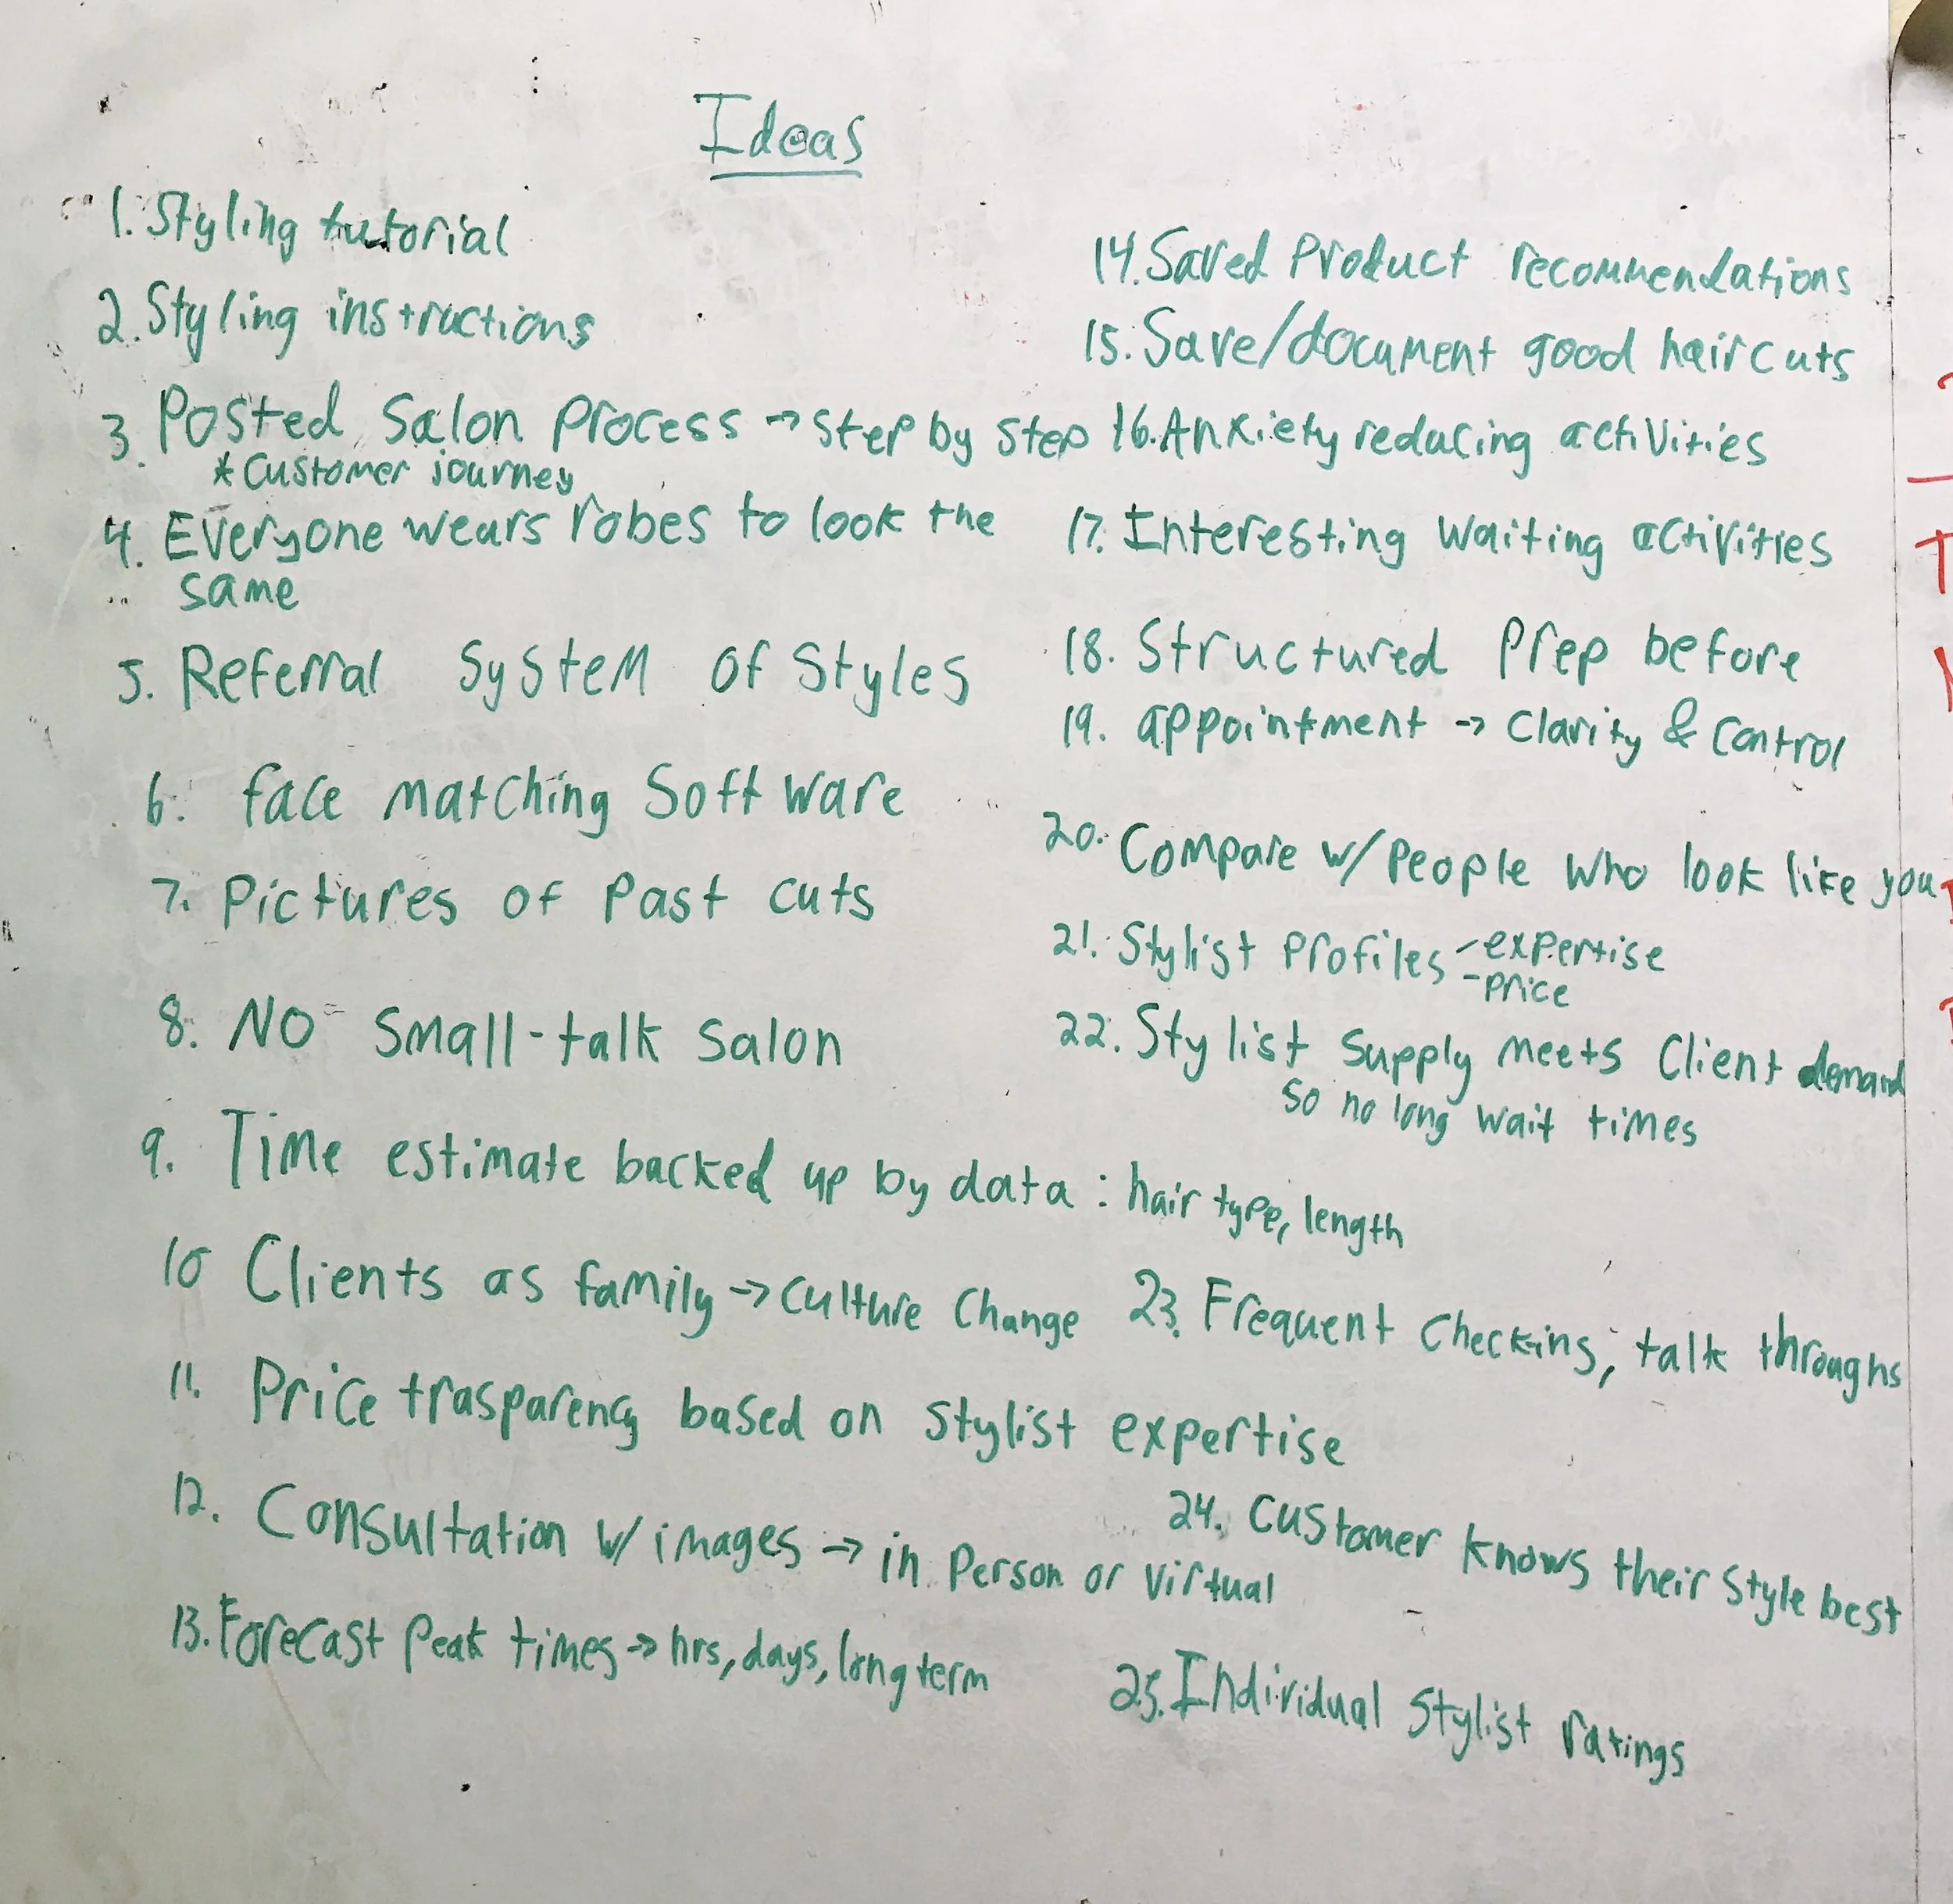 Ideas
1. Styling tutorial
2. Styling instructions
3. Posted Salon Process → Step by Step
* Customer journey
4. Everyone wears robes to look the
same
5. Referral System of Styles
6. face matching Software
7. Pictures of Past cuts
8. NO Small-talk Salon
9. Time estimate backed up by data : hair type, length
10 Clients as family → Culture Change
11. Price trasparency based on stylist expertise
12. Consultation w/ images → in Person or Virtual
13. Forecast Peak times → hrs, days, long term
14. Saved Product recommendations
15. Save/document good haircuts
16. Anxiety reducing activities
17. Interesting Waiting activities
18. Structured Prep before
19. appointment → Clarity & Control
20. Compare w/ People Who look like you
21. Stylist Profiles - expertise
- Price
22. Stylist Supply Meets Client demand
So no long wait times
23. Frequent Checking, talk throughs
24. Customer knows their Style best
25. Individual Stylist ratings